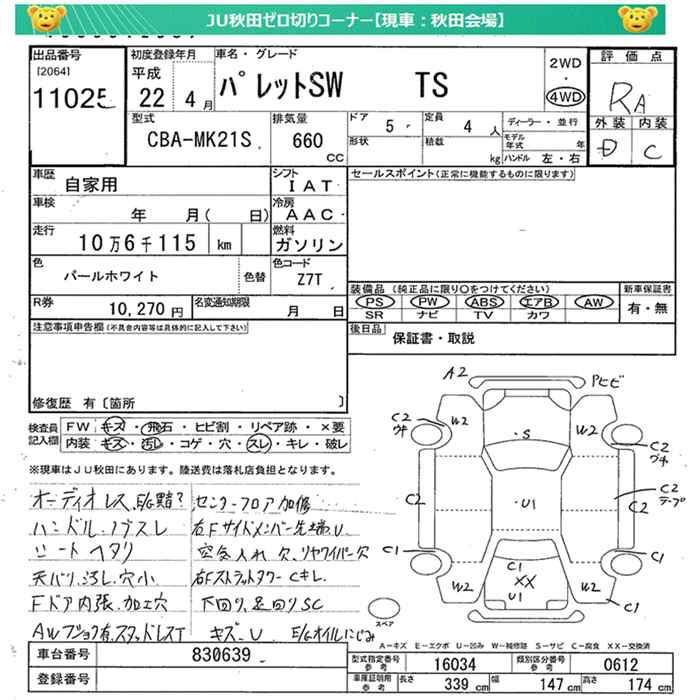 JU秋田ゼロ切りコーナー【現車：秋田会場】
出品番号
[2064]
11025
初度登録年月
平成
22年 4月
車名・グレード
パレットSW TS
2WD
・
4WD
評価点
RA
外装 内装
D C
型式
CBA-MK21S
排気量
660
CC
ドア 5
形状
定員 4 人
積載 kg
ディーラー・並行
モデル年式 年
ハンドル 左・右
車歴 自家用
シフト IAT
セールスポイント(正常に機能するものに限ります)
車検 年 月( 日)
冷房 AAC
走行 10万6千115 km
燃料 ガソリン
色 パールホワイト
色替
色コード Z7T
装備品 (純正品に限り○をつけてください)
PS PW ABS エアB AW
SR ナビ TV カワ
新車保証書
有・無
R券 10,270円
名変通知期限 月 日
後日品 保証書・取説
注意事項申告欄(不具合内容等は具体的に記入して下さい)
修復歴 有〔箇所 〕
検査員記入欄
FW キズ・飛石・ヒビ割・リペア跡・×要
内装 キズ・汚れ・コゲ・穴・スレ・キレ・破レ
※現車はJU秋田にあります。陸送費は落札店負担となります。
オーディオレス、E/G黠?
ハンドル・ノブスレ
シートヘタリ
天バリ汚レ、穴小
Fドア内張、加工穴
AWブジョウ有、スタッドレスT
センターフロア加修
右Fサイドメンバー先端U
空気入れ欠、リヤワイパー欠
右FストラットタワーCキレ
下回り、足回りSC
キズ・U E/Gオイルにじみ
A2
Pヒビ
C2
ウキ
W2
W2
C2
ウキ
・S
C2
・U1
C2
C2
テープ
C1
C1
C1
XX
U1
W2
W2
C1
スペア
A－キズ E－エクボ U－凹み W－補修跡 S－サビ C－腐食 XX－交換済
車台番号 830639
登録番号
型式指定番号参考 16034
類別区分番号参考 0612
車庫証明用参考 長さ 339cm 幅 147cm 高さ 174cm